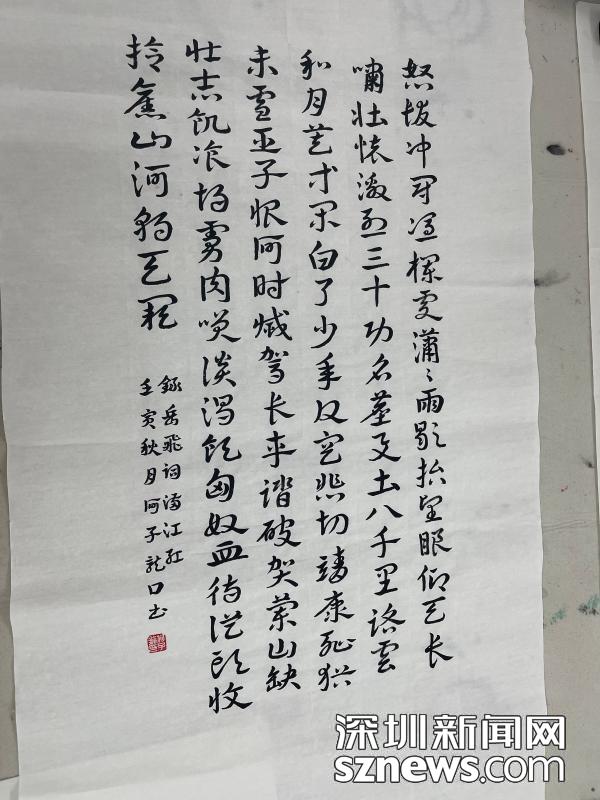 怒髮冲冠凭栏處潇〻雨歇抬望眼仰天长
嘯壮怀激烈三十功名塵与土八千里路雲
和月莫等闲白了少年头空悲切靖康耻犹
未雪臣子恨何时滅驾长车踏破贺蘭山缺
壮志飢飡胡虏肉笑谈渴飲匈奴血待從头收
拾舊山河朝天阙
録岳飛词满江红
壬寅秋月
深圳新闻网
sznews.com